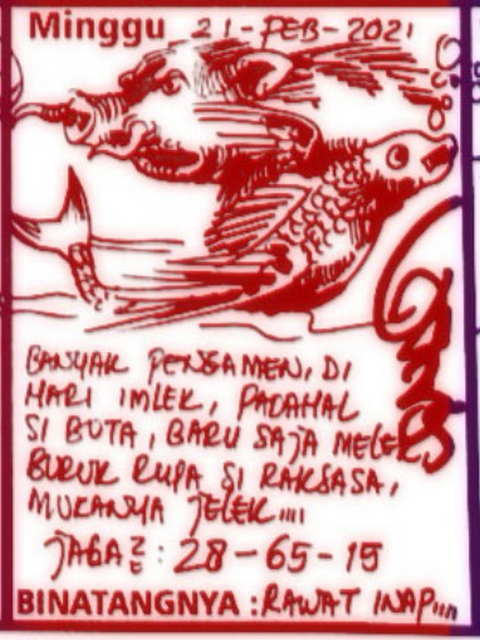 Minggu 21-PEB-2021
BANYAK PENGAMEN, DI
HARI IMLEK, PADAHAL
SI BUTA, BARU SAJA MELEK
BURUK RUPA SI RAKSASA,
MUKANYA JELEK....
JAGA2 : 28-65-15
BINATANGNYA : RAWAT INAP....